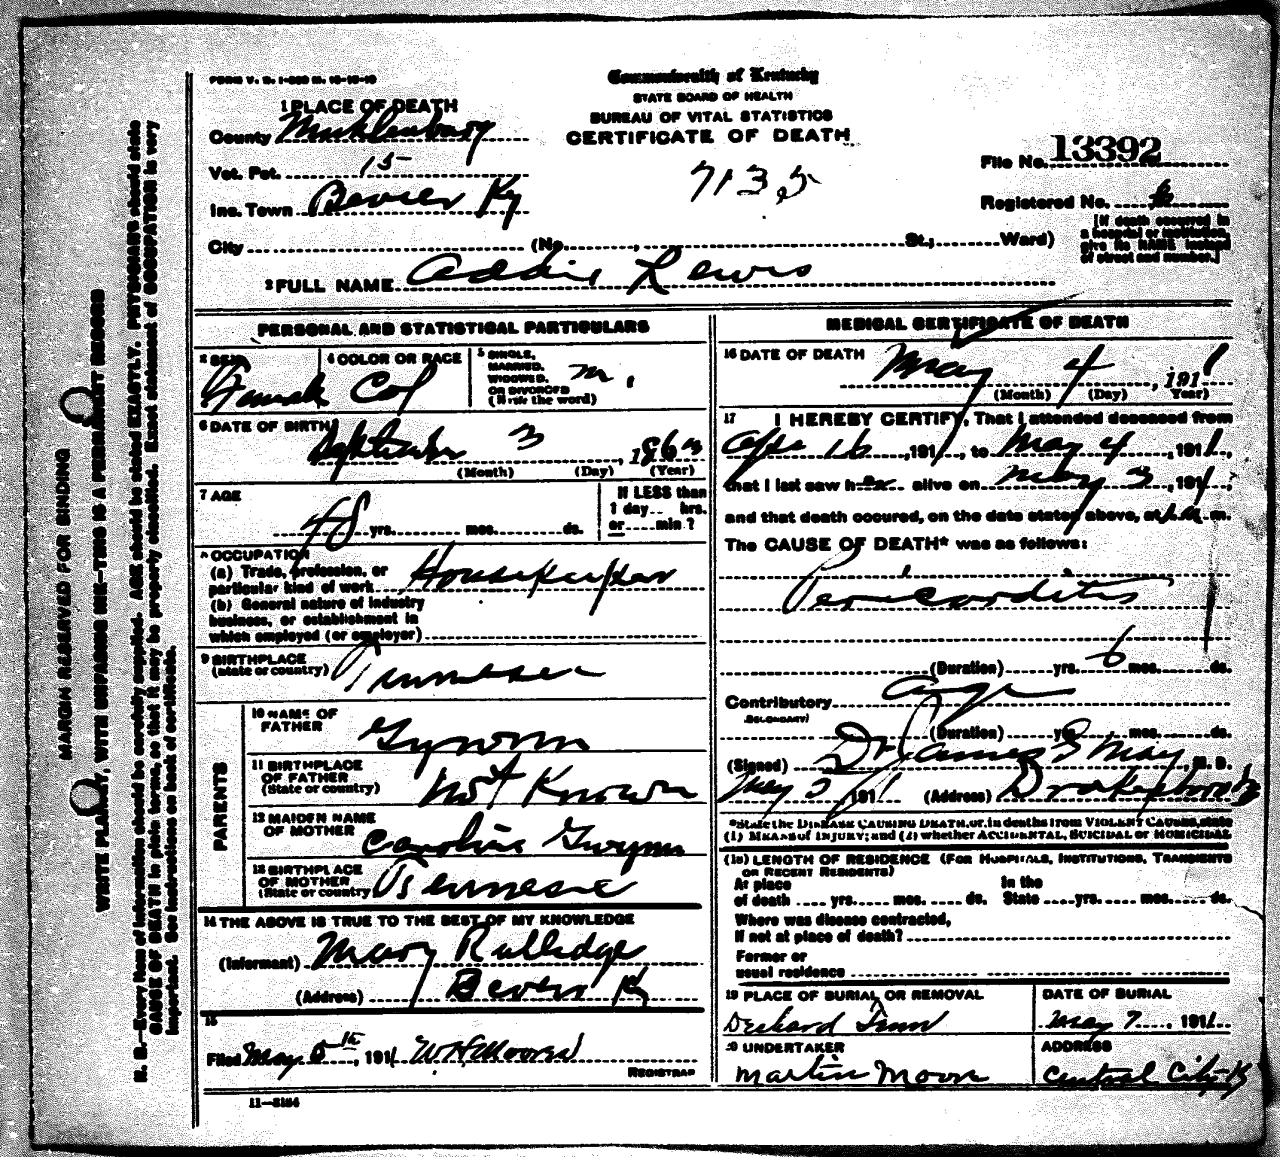 FORM V. S. 1-
Commonwealth of Kentucky
STATE BOARD OF HEALTH
BUREAU OF VITAL STATISTICS
CERTIFICATE OF DEATH
1 PLACE OF DEATH
County Muhlenburg
Vot. Pct. 15
Inc. Town Bevier Ky
City (No. , St.; Ward)
7135
File No. 13392
Registered No. 6
[If death occurred in
a hospital or institution,
give its NAME instead
of street and number.]
2 FULL NAME Addie Lewis
PERSONAL AND STATISTICAL PARTICULARS
3 SEX
Female
4 COLOR OR RACE
Col
5 SINGLE,
MARRIED,
WIDOWED,
OR DIVORCED
(Write the word)
m.
6 DATE OF BIRTH
September 3, 186
(Month) (Day) (Year)
7 AGE
48 yrs. mos. ds.
If LESS than
1 day hrs.
or min ?
8 OCCUPATION
(a) Trade, profession, or
particular kind of work Housekeeper
(b) General nature of industry
business, or establishment in
which employed (or employer)
9 BIRTHPLACE
(state or country) Tennessee
PARENTS
10 NAME OF
FATHER
Gywnn
11 BIRTHPLACE
OF FATHER
(State or country)
Not Known
12 MAIDEN NAME
OF MOTHER
Caroline Gwynn
13 BIRTHPLACE
OF MOTHER
(State or country
Tennessee
14 THE ABOVE IS TRUE TO THE BEST OF MY KNOWLEDGE
(Informant) Mary Rutledge
(Address) Bevier Ky
15
Filed May 5th, 1911 W H Moore
REGISTRAR
11-3184
MEDICAL CERTIFICATE OF DEATH
16 DATE OF DEATH
May 4, 1911
(Month) (Day) Year)
17 I HEREBY CERTIFY, That I attended deceased from
Apr 16, 1911, to May 4, 1911,
that I last saw her alive on May 3, 1911,
and that death occured, on the date stated above, at m.
The CAUSE OF DEATH* was as follows:
Pericarditis
(Duration) yrs. 6 mos. ds.
Contributory
(SECONDARY)
(Duration) yrs. mos. ds.
(Signed) Dr James S May, M. D.
May 5 1911 (Address) Drakesboro Ky
*State the DISEASE CAUSING DEATH, or, in deaths from VIOLENT CAUSES, state
(1) MEANS of INJURY; and (2) whether ACCIDENTAL, SUICIDAL or HOMICIDAL
(18) LENGTH OF RESIDENCE (FOR HOSPITALS, INSTITUTIONS, TRANSIENTS
OR RECENT RESIDENTS)
At place
of death yrs. mos. ds.
In the
State yrs. mos. ds.
Where was disease contracted,
If not at place of death?
Former or
usual residence
19 PLACE OF BURIAL OR REMOVAL
Dechard Tenn
DATE OF BURIAL
May 7, 1911
20 UNDERTAKER
Martin Moon
ADDRESS
Central City Ky
MARGIN RESERVED FOR BINDING
WRITE PLAINLY, WITH UNFADING INK—THIS IS A PERMANENT RECORD
N. B.—Every item of information should be carefully supplied. AGE should be stated EXACTLY. PHYSICIANS should state
CAUSE OF DEATH in plain terms, so that it may be properly classified. Exact statement of OCCUPATION is very
important. See instructions on back of certificate.